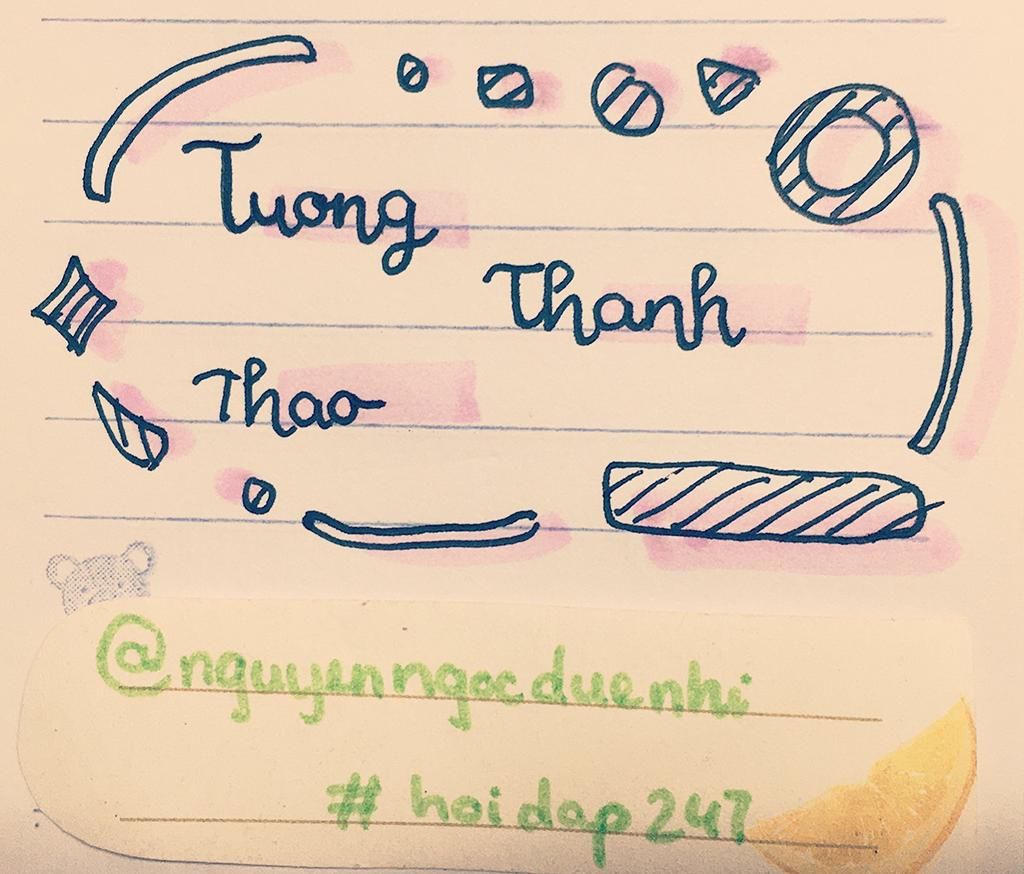 Tuong
Thanh
Thao
@nguyenngocduenhi
# hoidap247